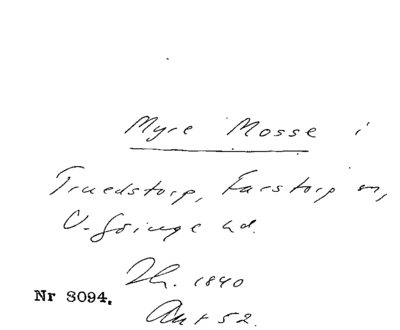 Myre Mosse i
Truedstorp, Farstorp sn,
V. Göinge hd.
Th. 1840
Nr 8094.
Ant 52.